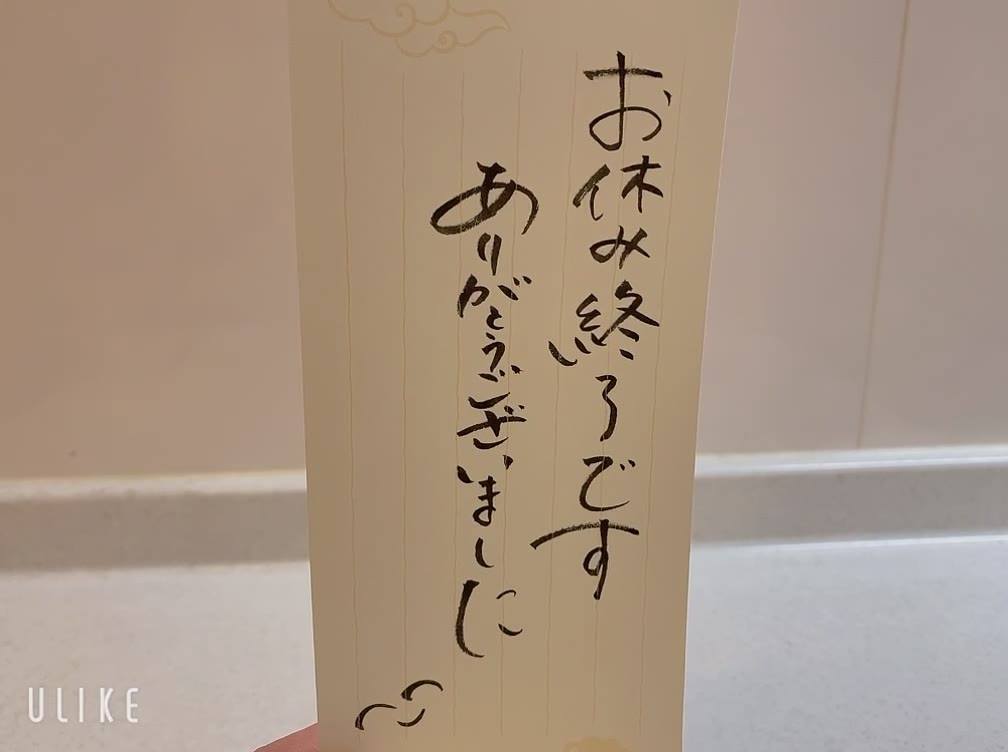 お休み終了です
ありがとうございました
ULIKE